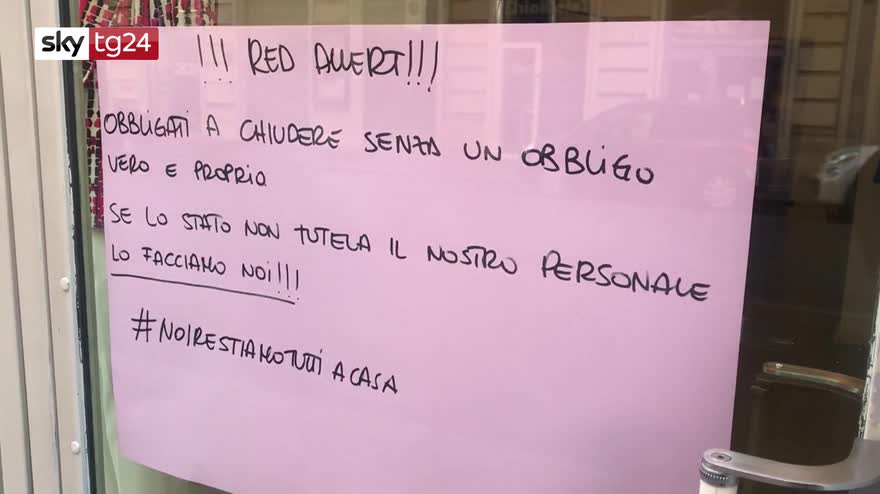 sky tg24
!!! RED ALLERT!!!
OBBLIGATI A CHIUDERE SENZA UN OBBLIGO
VERO E PROPRIO
SE LO STATO NON TUTELA IL NOSTRO PERSONALE
LO FACCIAMO NOI!!!
#NOIRESTIAMOTUTTI A CASA